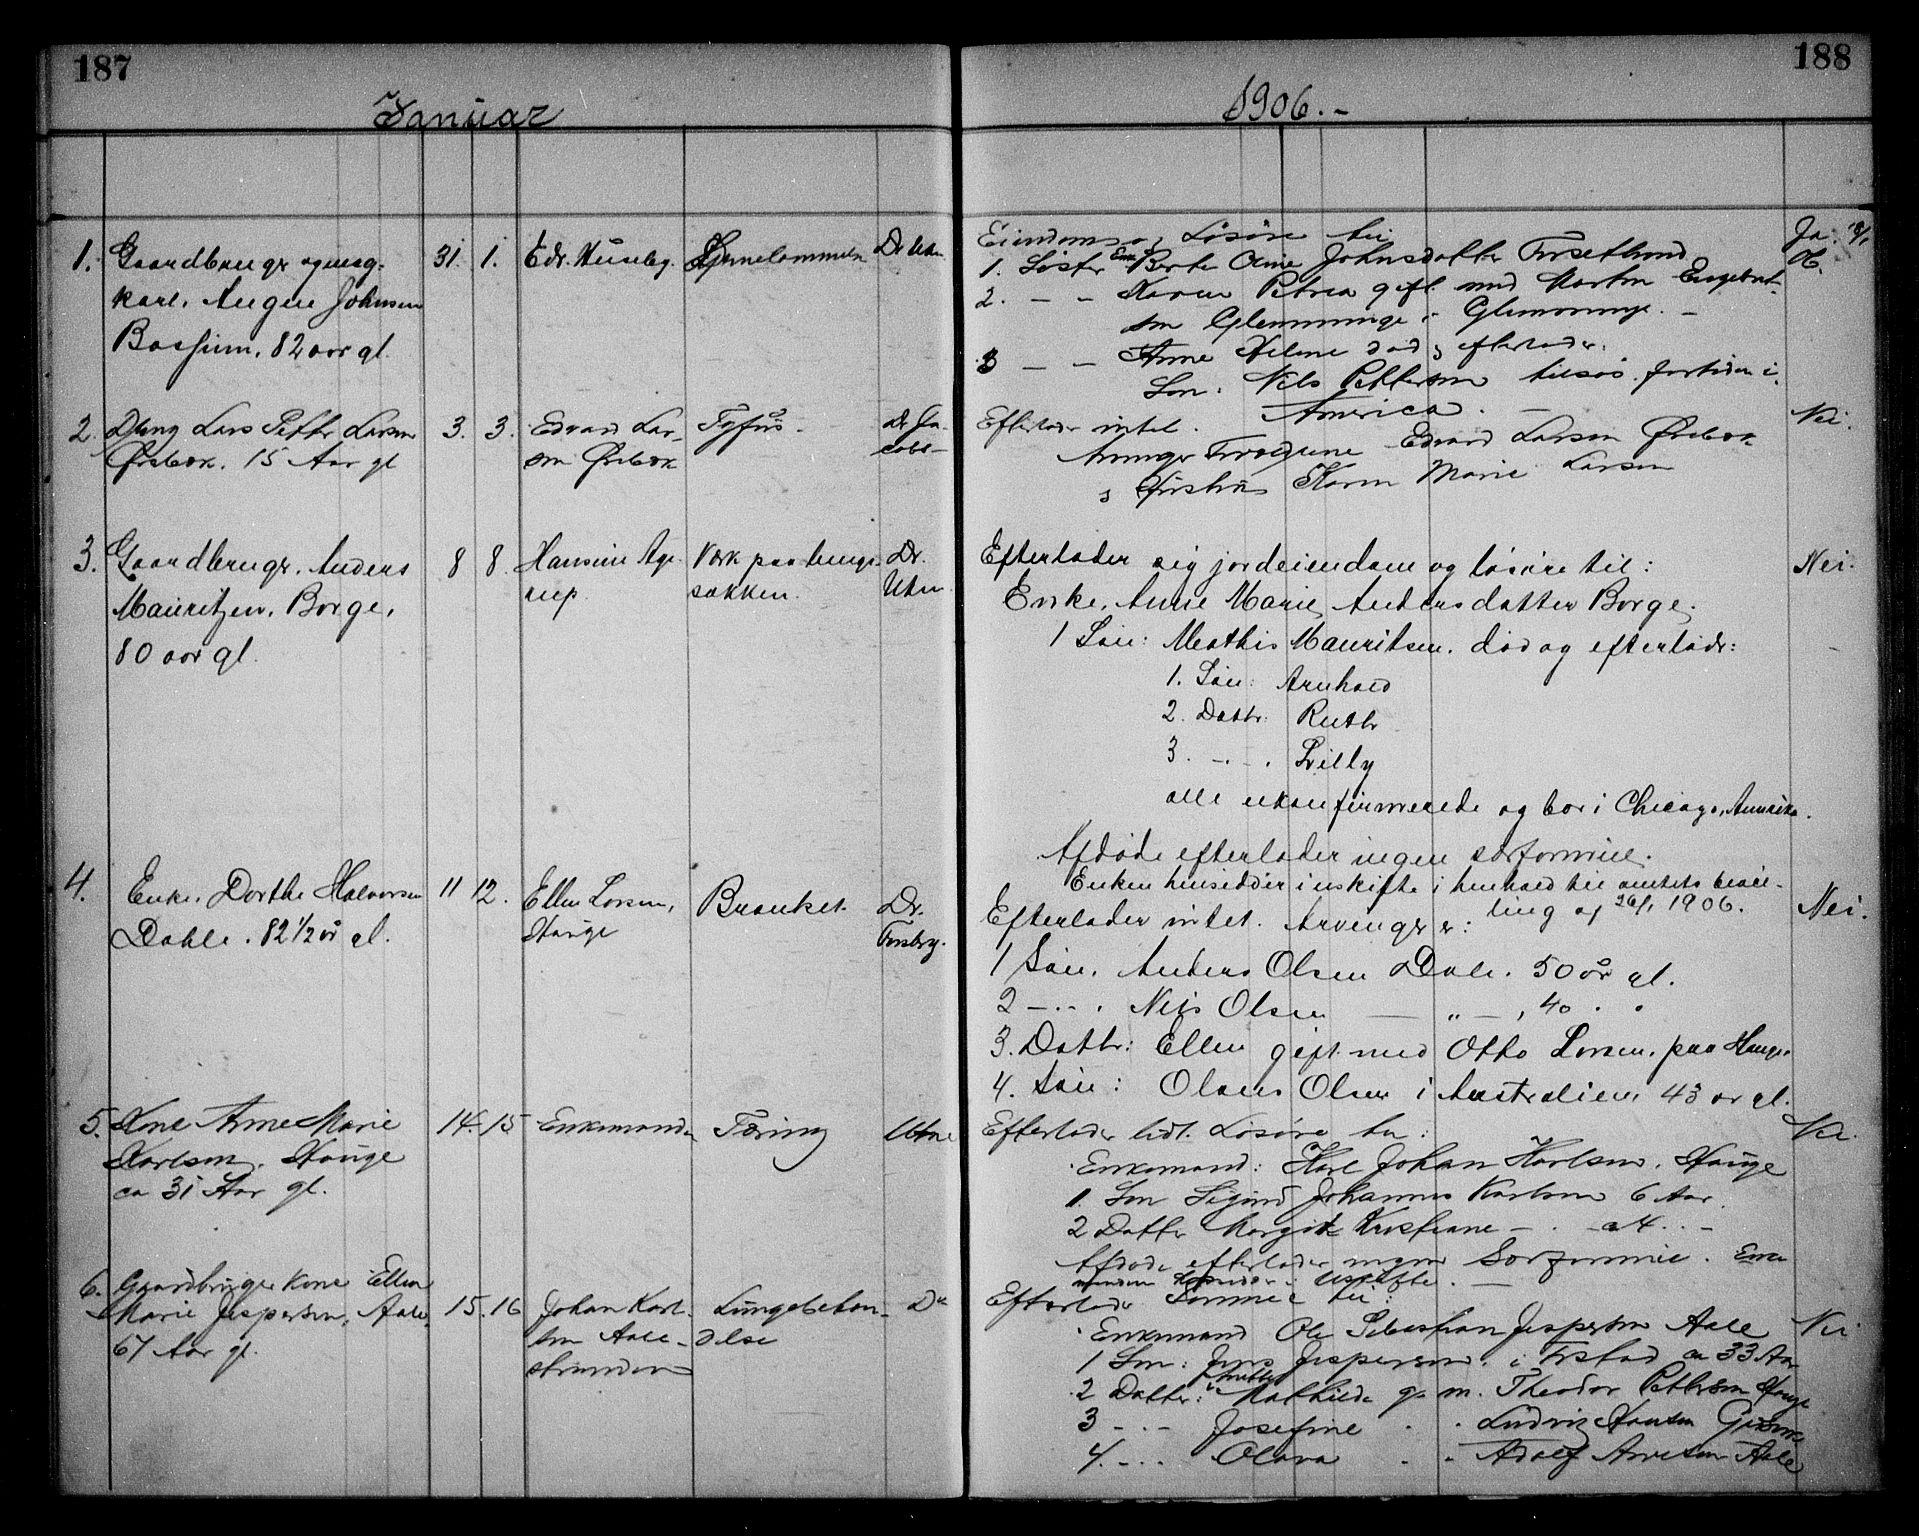 187
188
Januar
1906.-
1. Gaardbruger og ungkarl, August Johnsen Bossum. 82 aar gl.
31. 1.
Edv. Huseby.
Dr. Utne
Eiendom og Løsøre til
1. Søster Enke Berte Oline Johnsdatter Torsetlund
2. — - Karen Petrea gift med Morten Engebret-
sen Glemminge i Glemminge. -
3 — - Anne Helene død, efterlader.
Søn: Nils Pettersen tilsøs. fortiden i
America. -
Ja. 18/1
2. Dreng Lars Petter Larsen
Ørebæk. 15 Aar gl
3. 3.
Edvard Lar-
sen Ørebæk
Tyfus.
Dr. Ja-
cobs-
Efterlader intet.
Arvinger Forældrene Edvard Larsen Ørebæk
Hustru Karen Marie Larsen
Nei.
3. Gaardbrugr. Anders
Mauritzen, Borge,
80 aar gl.
8 8.
Hansine Age-
rup.
Værk paa lunge-
sækken.
Dr.
Utne
Efterlader sig jordeiendom og løsøre til:
Enke, Anne Marie Andersdatter Borge.
1 Søn: Mathis Mauritsen. død og efterladr:
1. Søn: Arnhold
2. Dattr: Ruth
3. - . - . Lilly
alle ukonfirmerede og bor i Chicago, Amerika.
Afdøde efterlader ingen særformue.
Enken hensidder i uskifte i henhold til amtets bevil-
ling af 26/1 1906.
Nei.
4. Enke. Dorthe Halvorsen
Dahle. 82 1/2 år gl.
11 12.
Ellen Larsen,
Hauge
Bronket.
Dr.
Efterlader intet. Arvinger er:
1 Søn. Anders Olsen Dale. 50 år gl.
2 -.-. Nils Olsen — „ —, 40 . .
3. Dattr: Ellen gift med Otto Larsen, paa Hauge.
4. Søn: Olaus Olsen i Australien 43 år gl.
Nei.
5. Kone Anne Marie
Karlsen. Hauge
ca 31 Aar gl.
14. 15
Enkemanden
Tæring
Utne
Efterlader lidt Løsøre til:
Enkemand: Karl Johan Karlsen. Hauge
1. Søn Sigurd Johannes Karlsen 6 Aar.
2 Datter Margit Kristiane - . - ca 4 . . -
Afdøde efterlader ingen Særformue. Enke-
manden hensidder i Uskifte. —
Nei.
6. Gaardbruger Kone Ellen
Marie Jespersen, Aale.
67 Aar gl.
15. 16
Johan Karl-
sen Aale-
stranden
Lungebeten-
delse
Do
Efterlader Formue til:
Enkemand Ole Sebastian Jespersen Aale
1 Søn: Jens Jespersen. i ca 33 Aar
2 Datter: Mathilde g. m. Theodor Pettersen Hauge
3 -.- Josefine . . Ludvig Hansen
4. -.. Olava . . Adolf Arvesen Aale
Nei